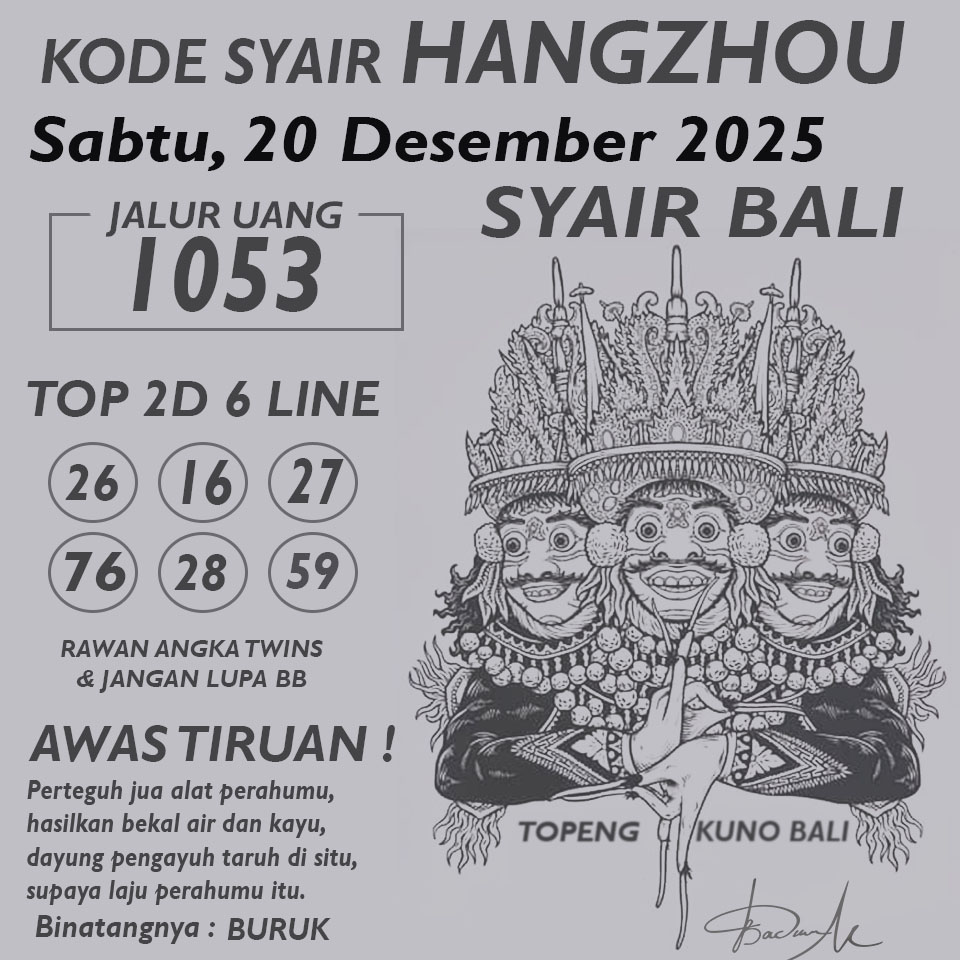 KODE SYAIR HANGZHOU
Sabtu, 20 Desember 2025
SYAIR BALI
JALUR UANG
1053
TOP 2D 6 LINE
26 16 27
76 28 59
RAWAN ANGKA TWINS
& JANGAN LUPA BB
AWAS TIRUAN !
Perteguh jua alat perahumu,
hasilkan bekal air dan kayu,
dayung pengayuh taruh di situ,
supaya laju perahumu itu.
Binatangnya : BURUK
TOPENG KUNO BALI